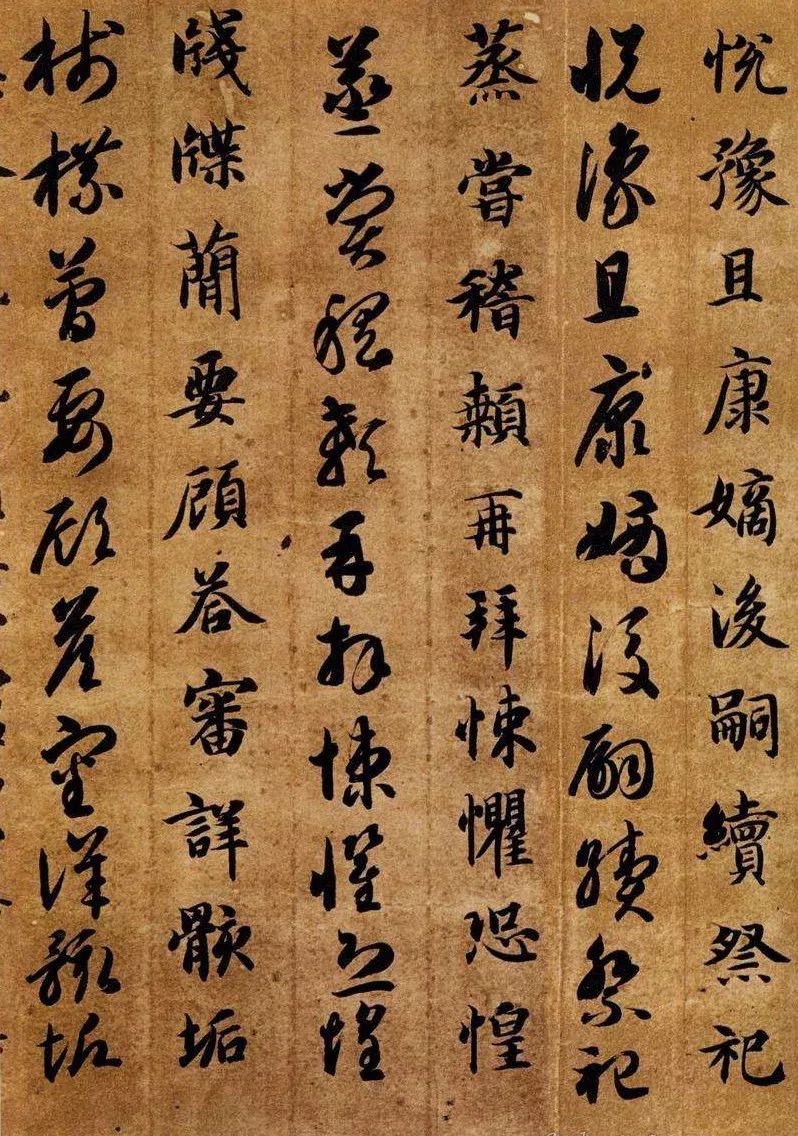 悅豫且康嫡後嗣續祭祀
悅豫且康嫡後嗣續祭祀
蒸嘗稽顙再拜悚懼恐惶
蒸嘗稽顙再拜悚懼恐惶
牋牒蕳要顧荅審詳骸垢
牋牒蕳要顧荅審詳骸垢